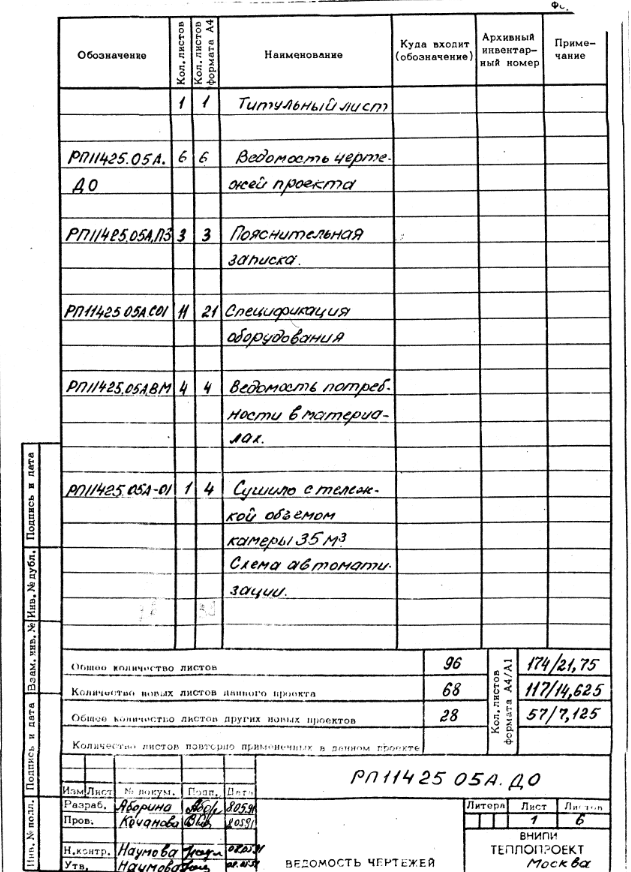 Обозначение Кол. листов Кол. листов формата А4 Наименование Куда входит (обозначение) Архивный инвентарный номер Примечание
1 1 Титульный лист
РП11425.05А. 6 6 Ведомость черте-
ДО жей проекта
РП11425.05А.ПЗ 3 3 Пояснительная
записка.
РП11425.05А.СО1 11 21 Спецификация
оборудования
РП11425.05А.ВМ 4 4 Ведомость потреб-
ности в материа-
лах.
РП11425.05А-01 1 4 Сушило с тележ-
кой объемом
камеры 35 м³
Схема автомати-
зации.
Общее количество листов 96 Кол. листов формата А4/А1 174/21,75
Количество новых листов данного проекта 68 117/14,625
Общее количество листов других новых проектов 28 57/7,125
Количество листов повторно примененных в данном проекте
РП11425 05А.ДО
Изм Лист № докум. Подп. Дата
Разраб. Аборина 8.05.91 Литера Лист Листов
Пров. Кочанова 8.05.91 1 6
ВНИПИ
Н.контр. Наумова ТЕПЛОПРОЕКТ
Утв. Наумова ВЕДОМОСТЬ ЧЕРТЕЖЕЙ Москва
Подпись и дата
Инв. № дубл.
Взам. инв. №
Подпись и дата
Инв. № подл.